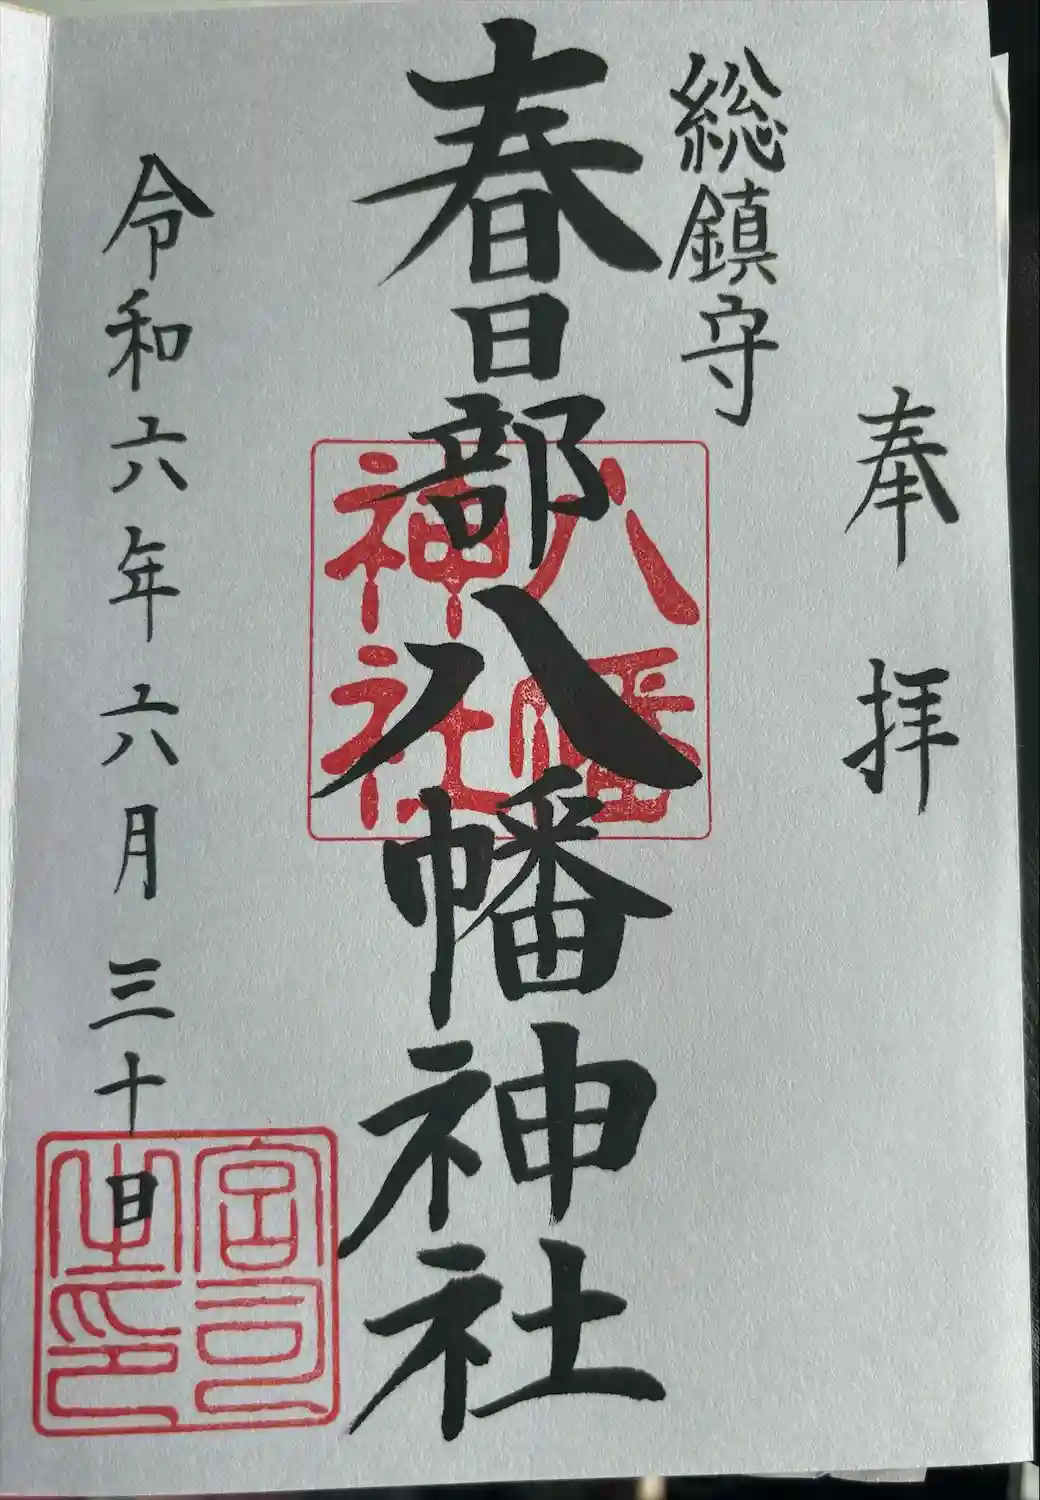 奉拝
総鎮守
春日部八幡神社
八幡
神社
令和六年六月三十日
宮司
之印